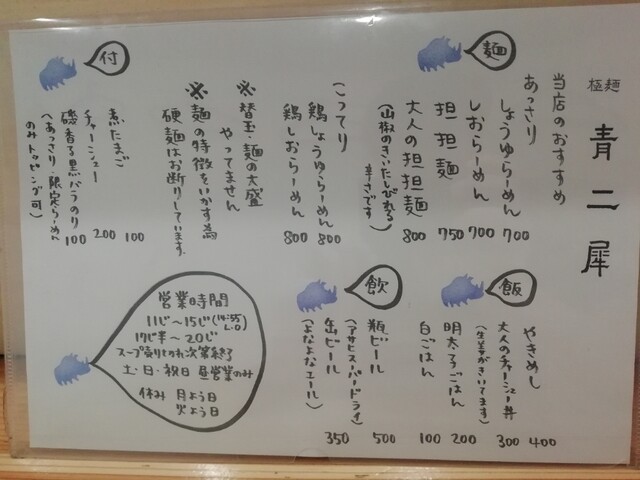 極麺
青二犀
麺
当店のおすすめ
あっさり
しょうゆらーめん 700
しおらーめん 700
担担麺 750
大人の担担麺 800
(山椒のきいたしびれる
辛さです)
こってり
鶏しょうゆらーめん 800
鶏しおらーめん 800
※替玉・麺の大盛
やってません
※麺の特徴をいかす為
硬麺はお断りしています。
付
煮たまご 100
チャーシュー 200
磯香る黒バラのり 100
(あっさり・限定らーめん
のみトッピング可)
飯
やきめし 400
大人のチャーシュー丼 300
(生姜がきいてます)
明太子ごはん 200
白ごはん 100
飲
瓶ビール 500
(アサヒスーパードライ)
缶ビール 350
(よなよなエール)
営業時間
11じ〜15じ(14:55 L.O)
17じ半〜20じ
スープ売りきれ次第終了
土・日・祝日 昼営業のみ
休み 月よう日
火よう日